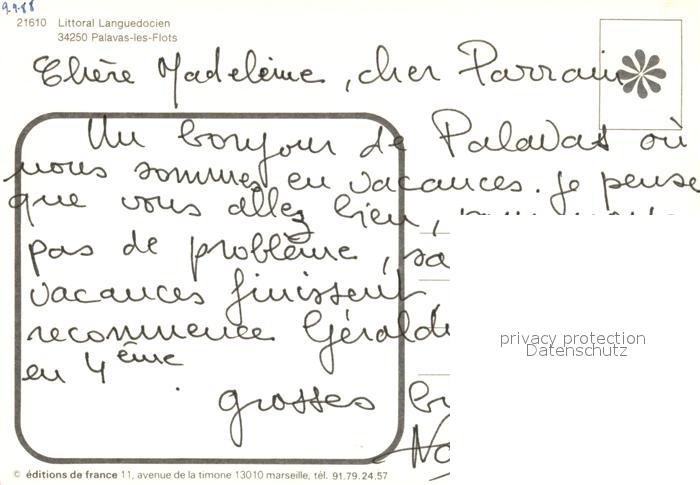 9.9.88
21610 Littoral Languedocien
34250 Palavas-les-Flots
Chère Madeleine, cher Parrain
Un bonjour de Palavas où
nous sommes en vacances. Je pense
que vous allez bien,
pas de problème,
vacances finissent,
recommence
en 4ème
grosses
privacy protection
Datenschutz
© éditions de france 11, avenue de la timone 13010 marseille, tél. 91.79.24.57